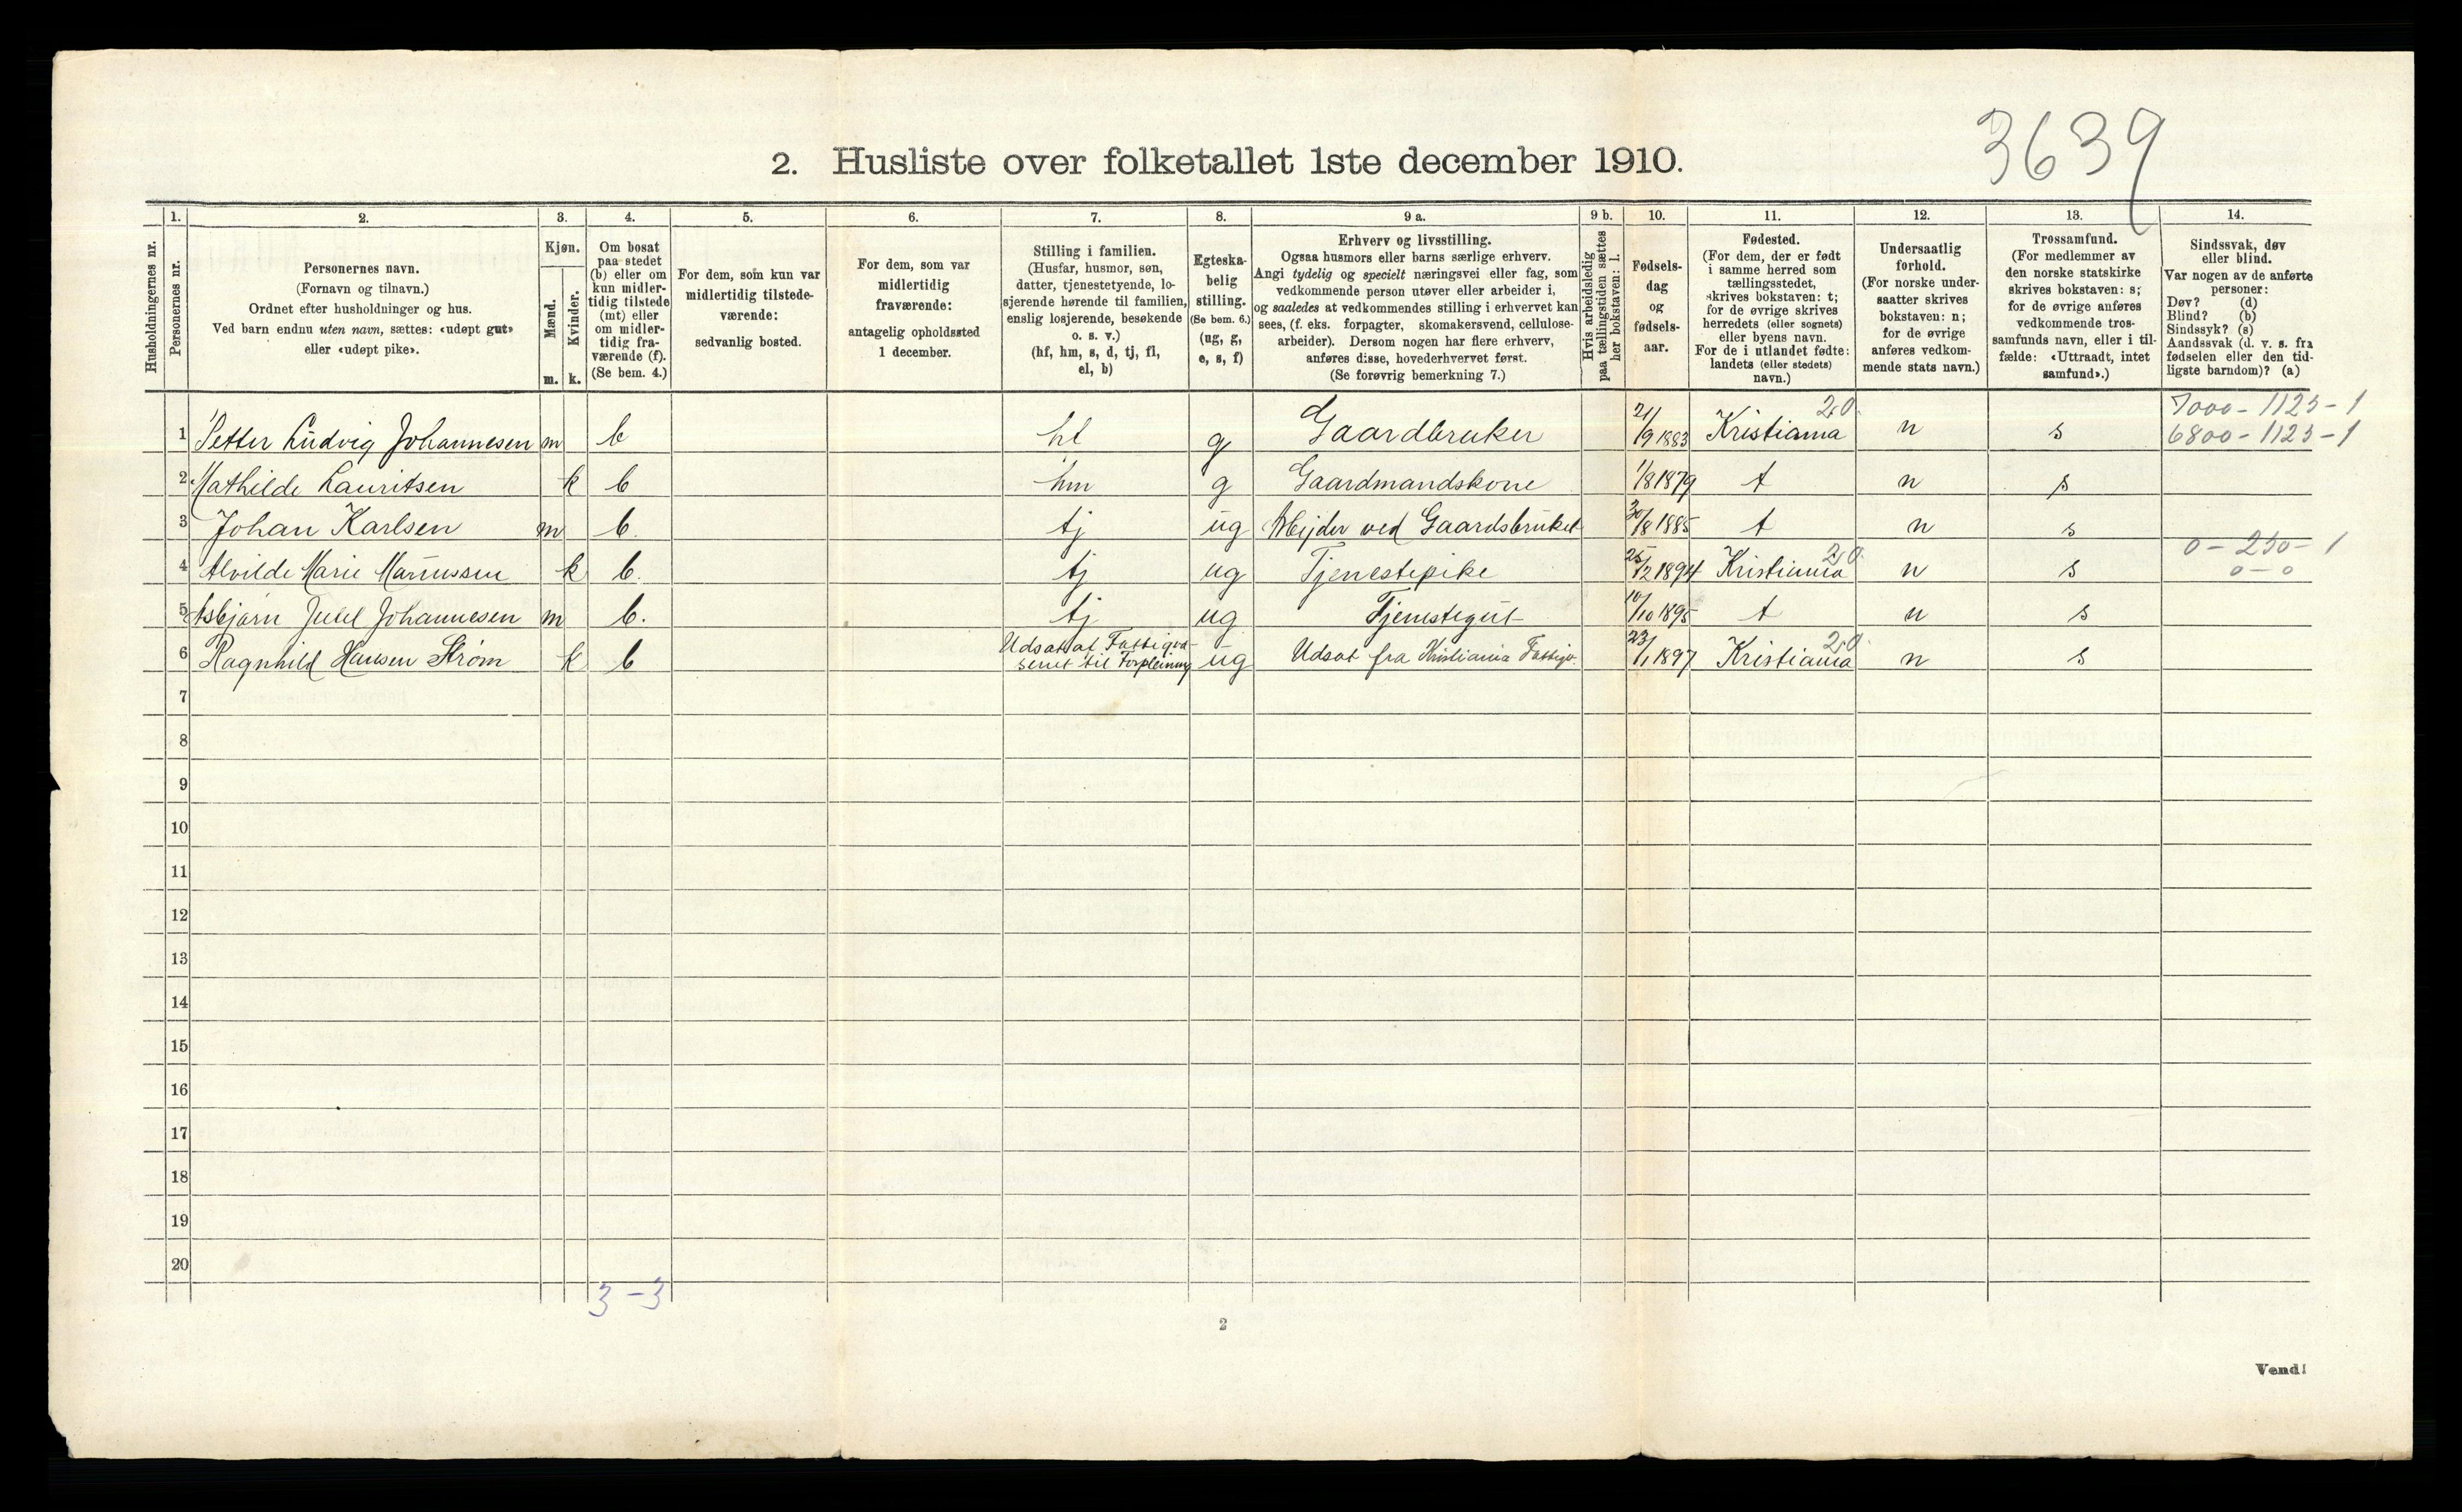 3639
2. Husliste over folketallet 1ste december 1910.
Husholdningernes nr.
1.
Personernes nr.
2.
Personernes navn.
(Fornavn og tilnavn.)
Ordnet efter husholdninger og hus.
Ved barn endnu uten navn, sættes: «udøpt gut»
eller «udøpt pike».
3.
Kjøn.
Mænd.
Kvinder.
m.
k.
4.
Om bosat
paa stedet
(b) eller om
kun midler-
tidig tilstede
(mt) eller
om midler-
tidig fra-
værende (f).
(Se bem. 4.)
5.
For dem, som kun var
midlertidig tilstede-
værende:
sedvanlig bosted.
6.
For dem, som var
midlertidig
fraværende:
antagelig opholdssted
1 december.
7.
Stilling i familien.
(Husfar, husmor, søn,
datter, tjenestetyende, lo-
sjerende hørende til familien,
enslig losjerende, besøkende
o. s. v.)
(hf, hm, s, d, tj, fl,
el, b)
8.
Egteska-
belig
stilling.
(Se bem. 6.)
(ug, g,
e, s, f)
9 a.
Erhverv og livsstilling.
Ogsaa husmors eller barns særlige erhverv.
Angi tydelig og specielt næringsvei eller fag, som
vedkommende person utøver eller arbeider i,
og saaledes at vedkommendes stilling i erhvervet kan
sees, (f. eks. forpagter, skomakersvend, cellulose-
arbeider). Dersom nogen har flere erhverv,
anføres disse, hovederhvervet først.
(Se forøvrig bemerkning 7.)
9 b.
Hvis arbeidsledig
paa tællingstiden sættes
her bokstaven: l.
10.
Fødsels-
dag
og
fødsels-
aar.
11.
Fødested.
(For dem, der er født
i samme herred som
tællingsstedet,
skrives bokstaven: t;
for de øvrige skrives
herredets (eller sognets)
eller byens navn.
For de i utlandet fødte:
landets (eller stedets)
navn.)
12.
Undersaatlig
forhold.
(For norske under-
saatter skrives
bokstaven: n;
for de øvrige
anføres vedkom-
mende stats navn.)
13.
Trossamfund.
(For medlemmer av
den norske statskirke
skrives bokstaven: s;
for de øvrige anføres
vedkommende tros-
samfunds navn, eller i til-
fælde: «Uttraadt, intet
samfund».)
14.
Sindssvak, døv
eller blind.
Var nogen av de anførte
personer:
Døv? (d)
Blind? (b)
Sindssyk? (s)
Aandssvak (d. v. s. fra
fødselen eller den tid-
ligste barndom)? (a)
2,0. 7000 - 1125 - 1
1 Petter Ludvig Johannesen m b hl g Gaardbruker 21/9 1883 Kristiania n s 6800 - 1125 - 1
2 Mathilde Lauritsen k b hm g Gaardmandskone 1/8 1879 t n s
3 Johan Karlsen m b. tj ug Arbejder ved Gaardsbruket 30/8 1885 t n s
2,0. 0 - 250 - 1
4 Alvilde Marie k b. tj ug Tjenestepike 25/12 1894 Kristiania n s 0 - 0
5 Asbjørn Juul Johannesen m b. tj ug Tjenestegut 10/10 1895 t n s
6 Ragnhild Hansen Strøm k b Udsat at Fattigvæ-
senet til Forpleining ug Udsat fra Kristiania Fattigv. 23/1 1897 Kristiania 2,0. n s
7
8
9
10
11
12
13
14
15
16
17
18
19
20
3 - 3
2
Vend!